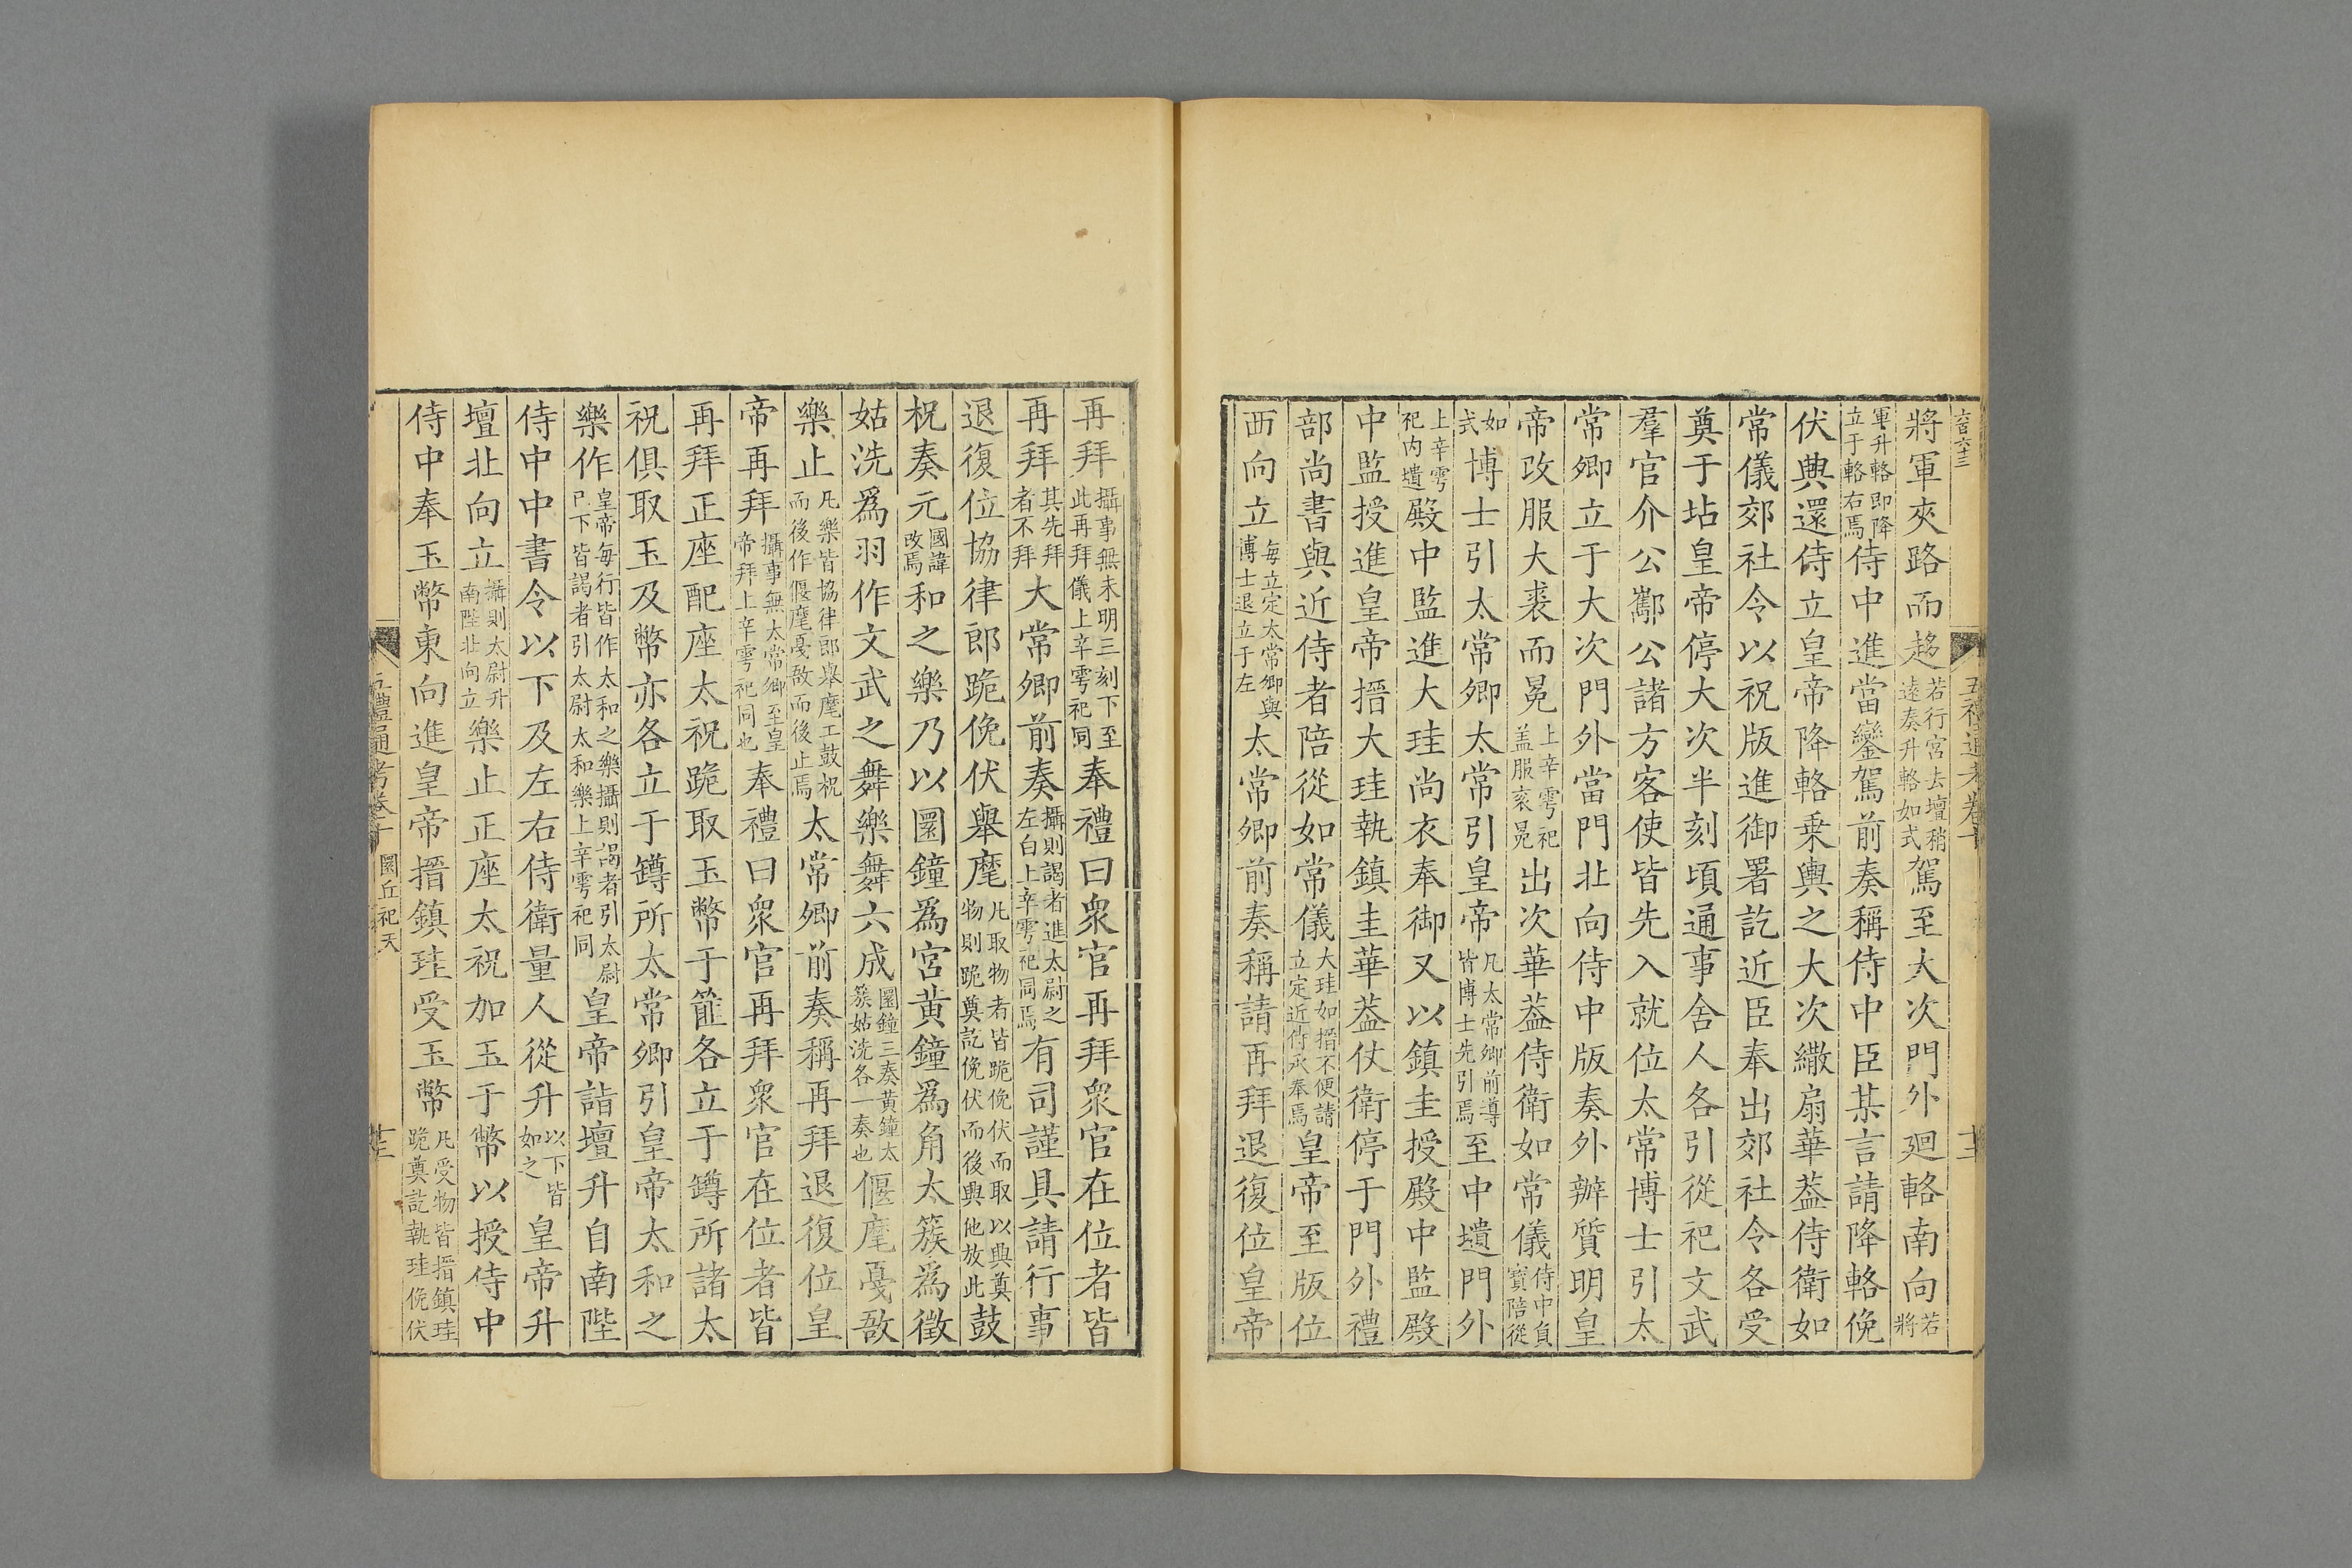 六百六十三
五禮通考卷十
將軍夾路而趍若行宮去壇稍遠奏升輅如式駕至大次門外廻輅南向若將
軍升輅即降立于輅右焉侍中進當鑾駕前奏稱侍中臣某言請降輅俛
伏興還侍立皇帝降輅乗輿之大次繖扇華葢侍衛如
常儀郊社令以祝版進御署訖近臣奉出郊社令各受
奠于坫皇帝停大次半刻頃通事舍人各引從祀文武
羣官介公酅公諸方客使皆先入就位太常博士引太
常卿立于大次門外當門北向侍中版奏外辦質明皇
帝改服大裘而冕上辛雩祀盖服衮冕出次華葢侍衛如常儀侍中負寳陪從
如式博士引太常卿太常引皇帝凡太常卿前導皆博士先引焉至中壝門外
上辛雩祀内壝殿中監進大珪尚衣奉御又以鎮圭授殿中監殿
中監授進皇帝搢大珪執鎮圭華葢仗衛停于門外禮
部尚書與近侍者陪從如常儀大珪如搢不便請立定近侍承奉焉皇帝至版位
西向立每立定太常卿與博士退立于左太常卿前奏稱請再拜退復位皇帝
再拜攝事無未明三刻下至此再拜儀上辛雩祀同奉禮曰衆官再拜衆官在位者皆
再拜其先拜者不拜大常卿前奏攝則謁者進太尉之左白上辛雩祀同焉有司謹具請行事
退復位協律郎跪俛伏舉麾凡取物者皆跪俛伏而取以興奠物則跪奠訖俛伏而後興他放此鼓
柷奏元國諱改焉和之樂乃以圜鐘爲宮黄鐘爲角太簇爲徵
姑洗爲羽作文武之舞樂舞六成圜鐘三奏黄鐘太簇姑洗各一奏也偃麾戞敔
樂止凡樂皆協律郎舉麾工鼓柷而後作偃麾戞敔而後止焉太常卿前奏稱再拜退復位皇
帝再拜攝事無太常卿至皇帝拜上辛雩祀同也奉禮曰衆官再拜衆官在位者皆
再拜正座配座太祝跪取玉幣于篚各立于罇所諸太
祝俱取玉及幣亦各立于罇所太常卿引皇帝太和之
樂作皇帝每行皆作太和之樂攝則謁者引太尉已下皆謁者引太尉太和樂上辛雩祀同皇帝詣壇升自南陛
侍中中書令以下及左右侍衛量人從升以下皆如之皇帝升
壇北向立攝則太尉升南陛北向立樂止正座太祝加玉于幣以授侍中
侍中奉玉幣東向進皇帝搢鎮珪受玉幣凡受物皆搢鎮珪跪奠訖執珪俛伏
五禮通考卷十
圜丘祀天